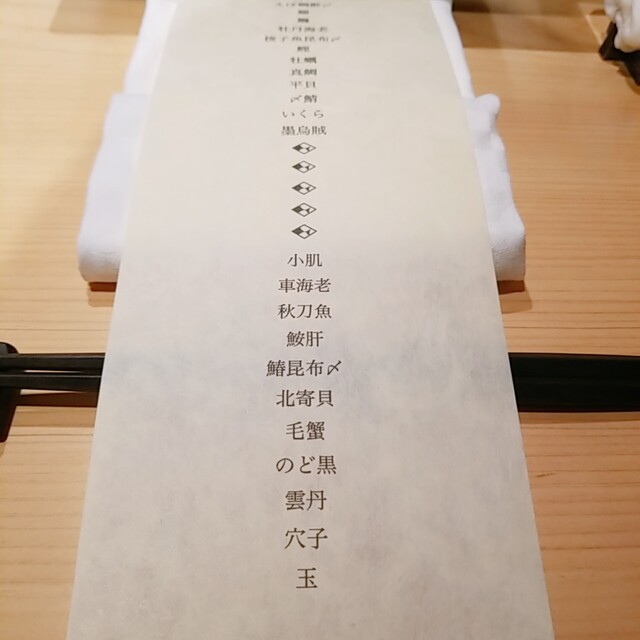 牡丹海老
鰹
牡蠣
真鯛
平貝
〆鯖
いくら
墨烏賊
小肌
車海老
秋刀魚
鮟肝
鰆昆布〆
北寄貝
毛蟹
のど黒
雲丹
穴子
玉